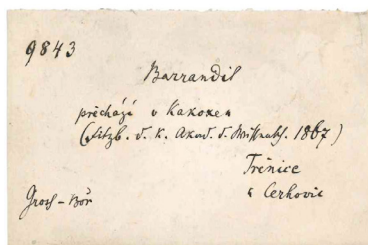 9843
Barrandit
přechází v Kakoxen
(Sitzb. d. k. Akad. d. Wissensch. 1867)
Třenice
u Cerhovic